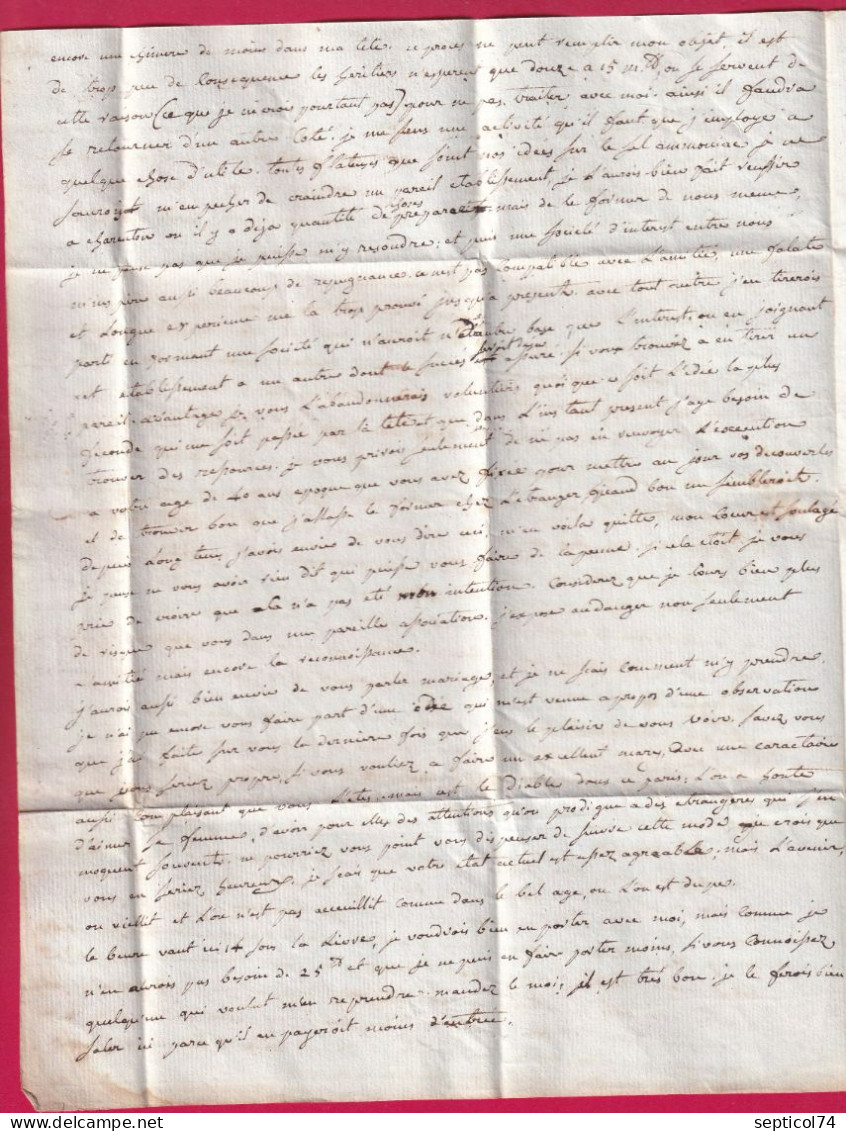 encore un chimere de moins dans ma tete. ce proces ne peut remplir mon objet, il est
de trop peu de consequence les heritiers n'esperent que douze a 15 m.# ou se servent de
cette raison (ce que je ne crois pourtant pas) pour ne pas traiter avec moi. ainsi il faudra
se retourner d'un autre coté. je me sens une activité qu'il faut que j'employe a
quelque chose d'utile. toutes flateuses que sont vos idées sur le sel ammoniac je ne
m'empecher de craindre un pareil etablissement, je l'aurois bien fait reussir
a charenton ou il y a deja quantité de choses mais de le former de nous meme,
je ne pense pas que je puisse m'y resoudre: et puis une societé d'interest entre nous
aussi beaucoup de repugnance. ce n'est pas compatible avec l'amitié, une fatale
et longue experience me l'a trop prouvé jusqu'a present. avec tout autre j'en tirerois
parti en formant une societé qui n'auroit d'autre base que l'interest ou en joignant
cet etablissement a un autre dont le succés soit deja assuré. si vous trouviez a en tirer un
pareil avantage je vous l'abandonnerais volontiers quoique ce soit l'idée la plus
feconde qui me soit passée par la tete et que dans l'instant present j'aye besoin de
trouver des ressources. je vous priois seulement de ne pas en renvoyer l'execution
a votre age de 40 ans epoque que vous avez fixée pour mettre au jour vos decouvertes
et de trouver bon que j'allasse le former chez l'etranger quand bon me sembleroit.
depuis long tems j'avois envie de vous dire ceci, m'en voila quitte, mon coeur est soulagé
je pense ne vous avoir rien dit qui puisse vous faire de la peine si cela etoit je vous
prie de croire que cela n'a pas eté mon intention. Considerez que je cours bien plus
de risque que vous dans une pareille association. j'expose au danger non seulement
l'amitié mais encore la reconnoissance.
j'aurois aussi bien envie de vous parler mariage, et je ne scais comment m'y prendre.
je n'ai pu encore vous faire part d'une idée qui m'est venue a propos d'une observation
que j'ai faite sur vous la derniere fois que j'eus le plaisir de vous voir. savez vous
que vous seriez propre, si vous vouliez a faire un excellent mary, avec une caractaire
aussi complaisant que vous l'etes. mais c'est le diable dans ce paris; l'on a honte
d'aimer sa femme, d'avoir pour elle des attentions qu'on prodigue a des etrangeres qui s'en
moquent souvent. ne pourriez vous point vous dispenser de suivre cette mode je crois que
vous en seriez heureux. je scais que votre etat actuel est assez agreable, mais l'avenir,
on vieillit et l'on n'est pas accueillit comme dans le bel age, ou l'on est dupe.
le beure vaut ici 14 sous la livre, je voudrois bien en porter avec moi, mais comme je
n'en aurois pas besoin de 25# et que je ne puis en faire porter moins, si vous connoissez
quelqu'un qui voulut m'en reprendre. mandez le moi, il est très bon. je le ferois bien
saler ici parce qu'il en payeroit moins d'entrée.
septicol74